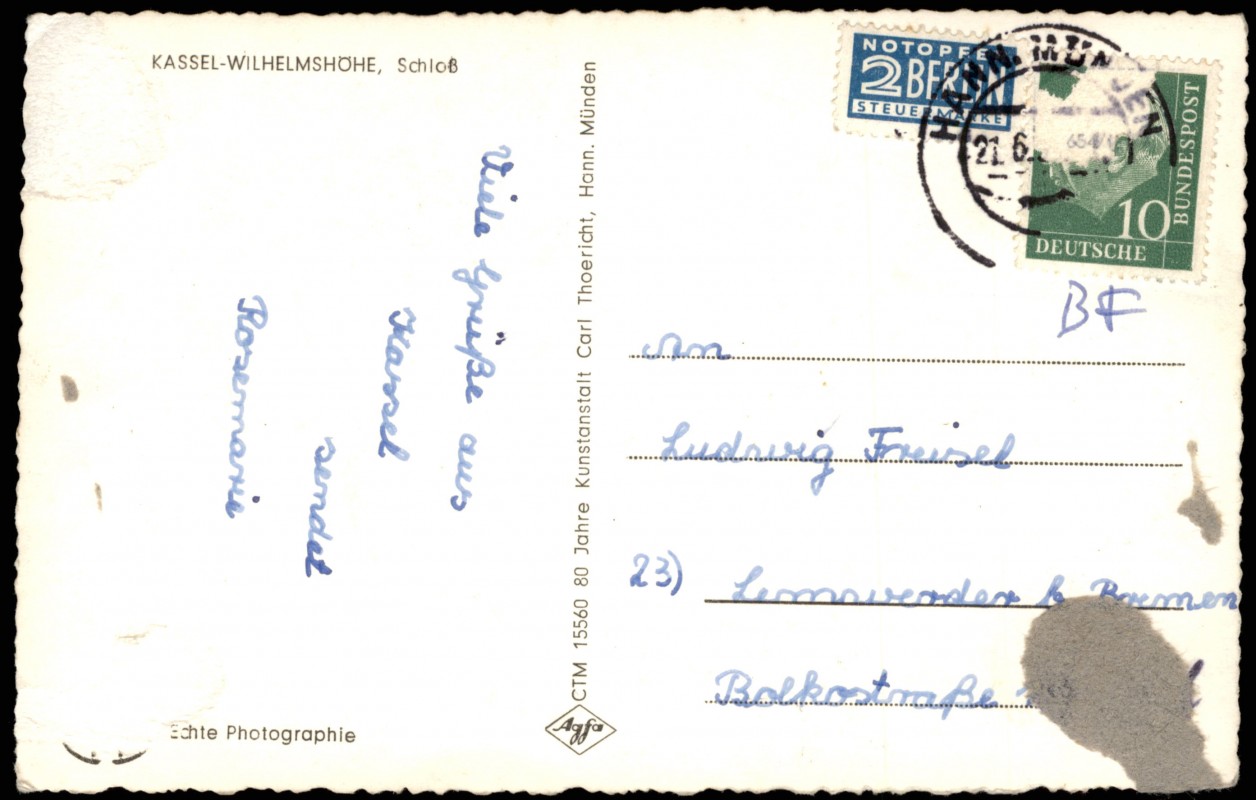 KASSEL-WILHELMSHÖHE, Schloß
Viele Grüße aus
Kassel
sendet
Rosemarie
Echte Photographie
CTM 15560 80 Jahre Kunstanstalt Carl Thoericht, Hann. Münden
Agfa
NOTOPFER
2 BERLIN
STEUERMARKE
HANN. MÜNDEN
21.6.
10
DEUTSCHE
BUNDESPOST
BF
An
Ludwig Freisel
23) Lemwerder b Bremen
Bolkostraße